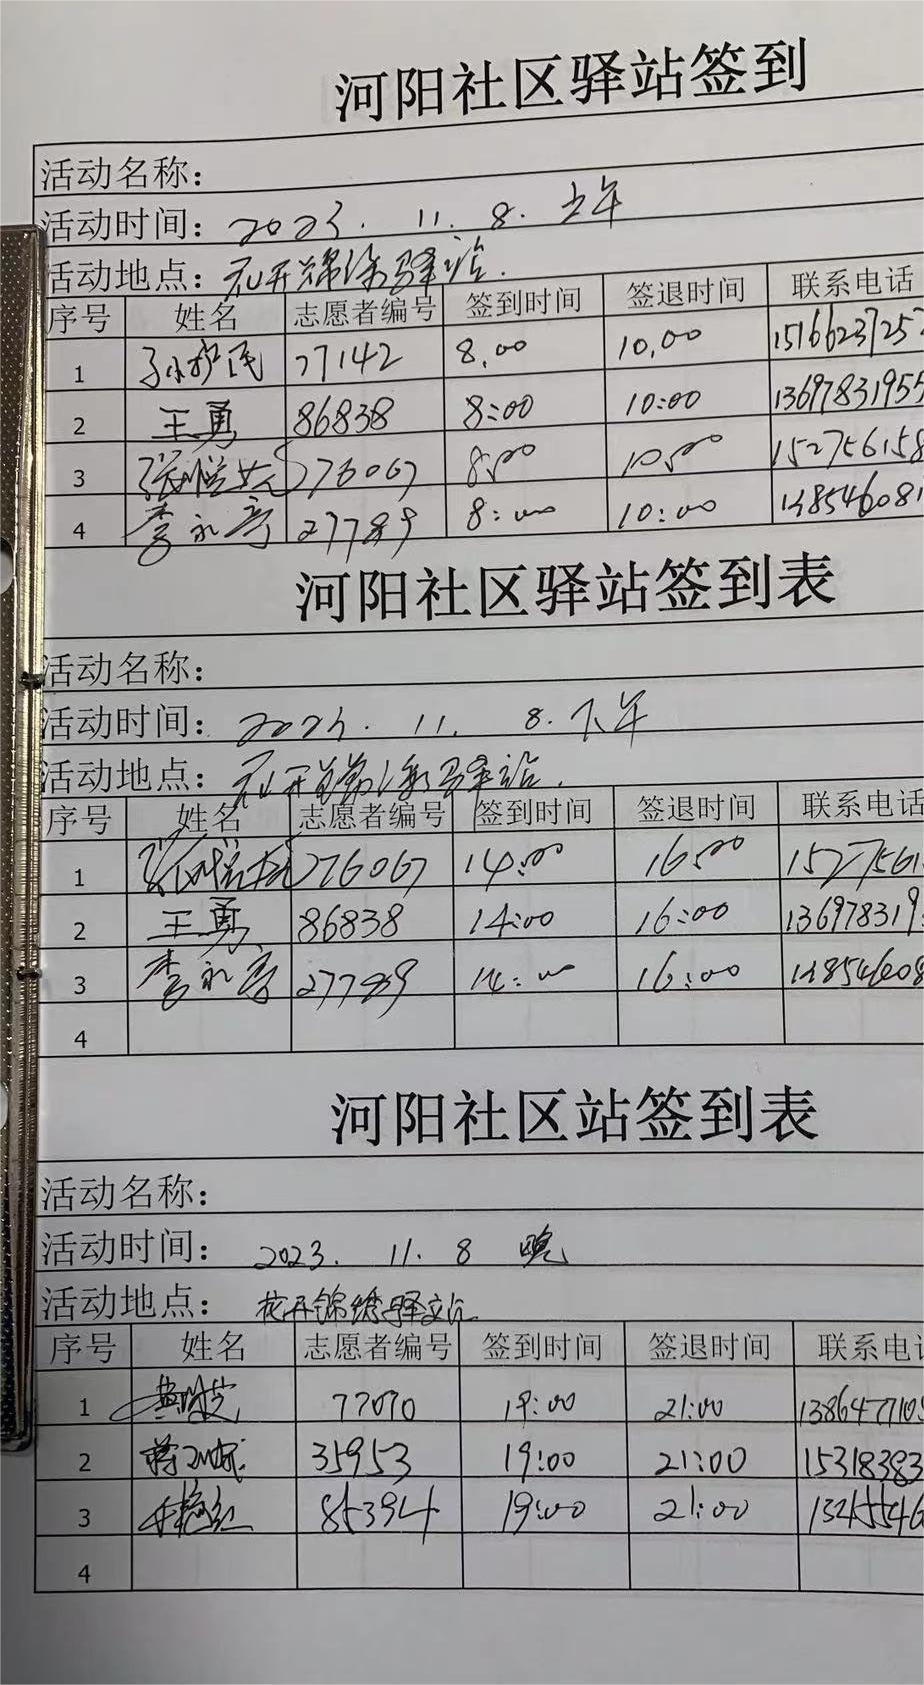 河阳社区驿站签到
活动名称：
活动时间：2023. 11. 8. 上午
活动地点：花开锦绣驿站.
序号 姓名 志愿者编号 签到时间 签退时间 联系电话
1 77142 8.00 10.00 1516623725
2 王勇 86838 8:00 10:00 13697831955
3 276067 8:00 10:00 152756158
4 李永亭 27789 8:00 10:00 138546081
河阳社区驿站签到表
活动名称：
活动时间：2023. 11. 8. 下午
活动地点：花开锦绣驿站.
序号 姓名 志愿者编号 签到时间 签退时间 联系电话
1 276067 14:00 16:00 1527561
2 王勇 86838 14:00 16:00 136978319
3 李永亭 27789 14:00 16:00 13854608
4
河阳社区站签到表
活动名称：
活动时间：2023. 11. 8 晚
活动地点：花开锦绣驿站
序号 姓名 志愿者编号 签到时间 签退时间 联系电话
1 77070 19:00 21:00 138647710
2 35953 19:00 21:00 15318383
3 85394 19:00 21:00
4